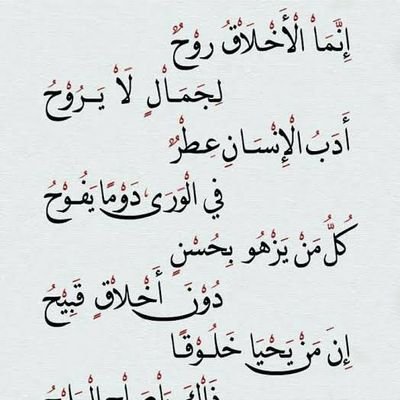 إِنَّمَاْ الْأَخْلَاْقُ رُوْحٌ
لِجَمَـاْلٍ لَاْ يَـرُوْحُ
أَدَبُ الْإِنْسَـاْنِ عِـطْرٌ
فِي الْوَرَىْ دَوْمًا يَفُـوْحُ
كُلُّ مَنْ يَزْهُو بِحُسْنٍ
دُوْنَ أَخْلَاْقٍ قَبِيْحُ
إِنَ مَنْ يَحْيَا خَلُـوْقًـا
ذَاْكَ